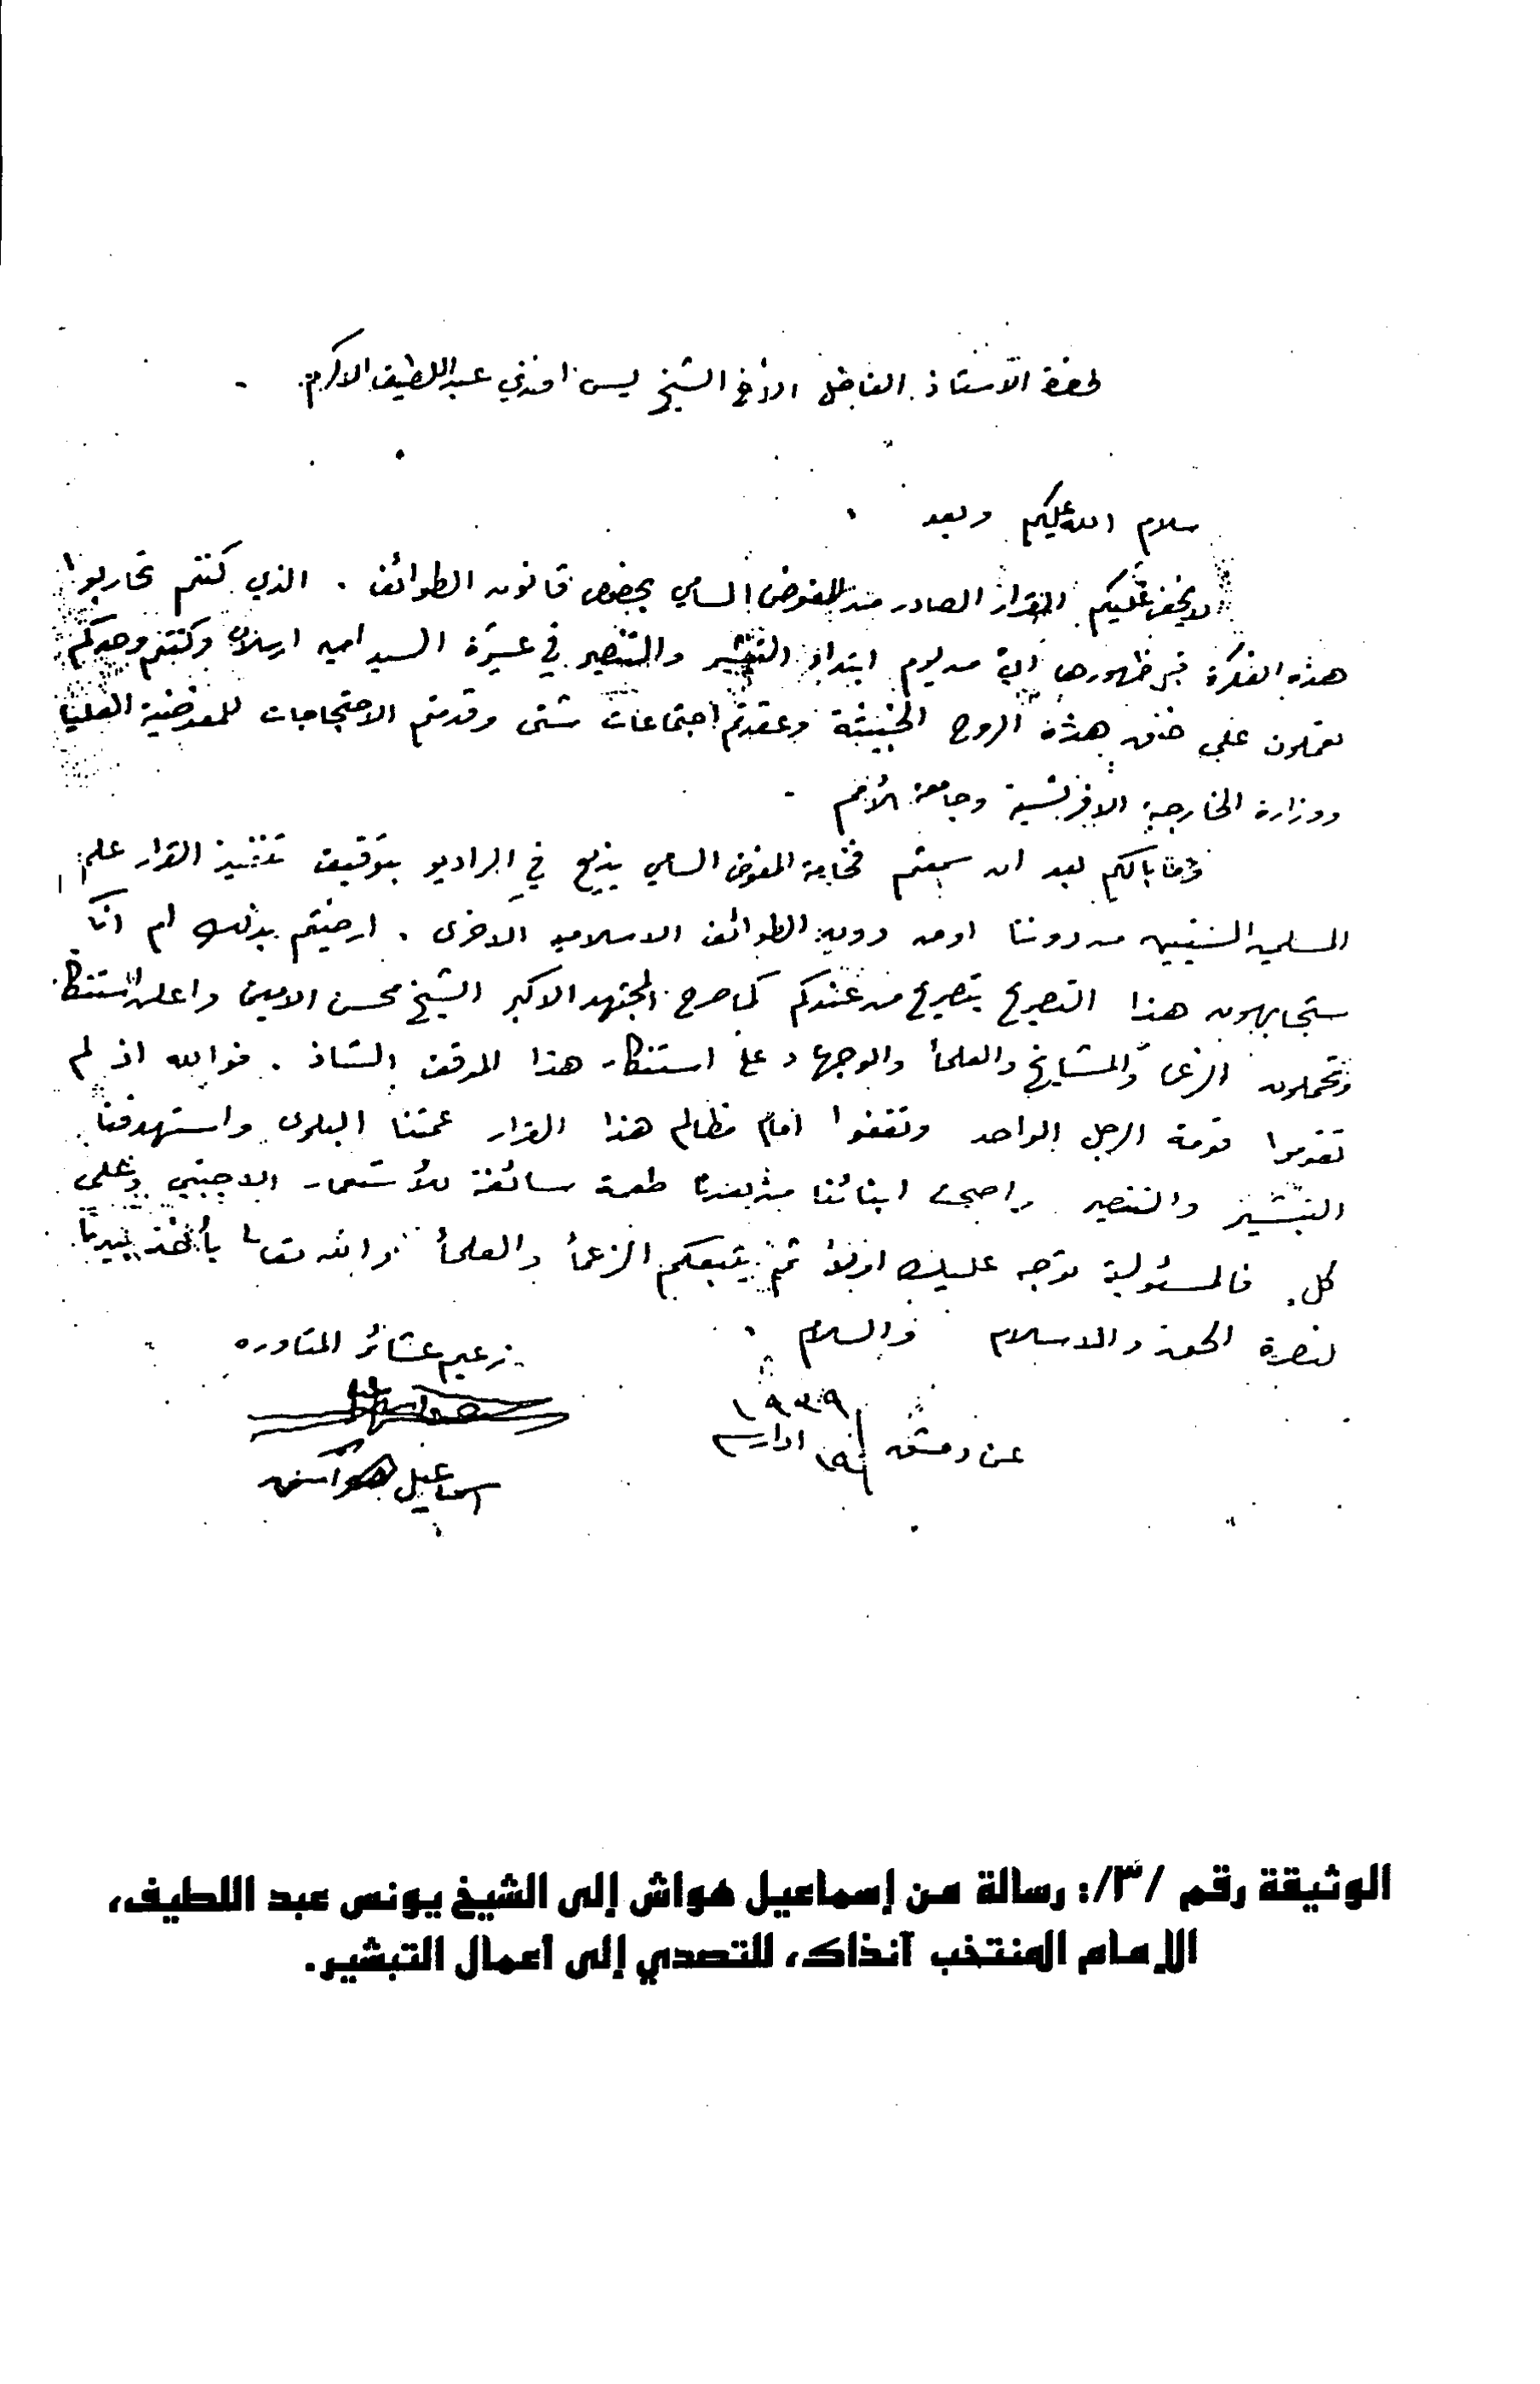 لحضرة الأستاذ الفاضل الأخ الشيخ يونس افندي عبد اللطيف الاكرم
سلام الله عليكم وبعد
لا يخف عليكم القرار الصادر من المفوض السامي بخصوص قانون الطوائف . الذي كنتم تحاربوا
هذه الفكرة قبل ظهورها اي من يوم ابتداء التبشير والتنصير في عشيرة السيد امين ارسلان وكنتم وحدكم
تعملون على خنق هذه الروح الخبيثة وعقدتم اجتماعات شتى وقدمتم الاحتجاجات للمفوضية العليا
ووزارة الخارجية الافرنسية وجامعة الأمم
فما بالكم بعد ان سمعتم فخامة المفوض السامي يذيع في الراديو بتوقيف تنفيذ القرار على
المسلمين السنيين من دوننا او من دون الطوائف الاسلامية الاخرى . ارضيتم بذلك ام انكم
ستجابهون هذا التصريح بتصريح من عندكم كما صرح المجتهد الاكبر الشيخ محسن الامين واعلن استنكاره
وتحملون الزعما والمشايخ والعلمأ والوجهاء على استنكار هذا الموقف الشاذ . فوالله اذ لم
تقوموا قومة الرجل الواحد وتقفوا امام مظالم هذا القرار عمتنا البلوى واستهدفنا
التبشير والتنصير واصبحت ابنائنا من بعدنا طعمة سائغة للأستعمار الاجنبي وعلى
كل فالمسئولية توجه عليك اولاً ثم يتبعكم الزعمأ والعلمأ والله تعالى يأخذ بيدنا
لنصرة الحق والاسلام والسلام
زعيم عشائر المتاوره
عن دمشق ١٩ اذار ١٩٣٩
اسماعيل هواش
الوثيقة رقم /٣/: رسالة من إسماعيل هواش إلى الشيخ يونس عبد اللطيف،
الإمام المنتخب آنذاك، للتصدي إلى أعمال التبشير.